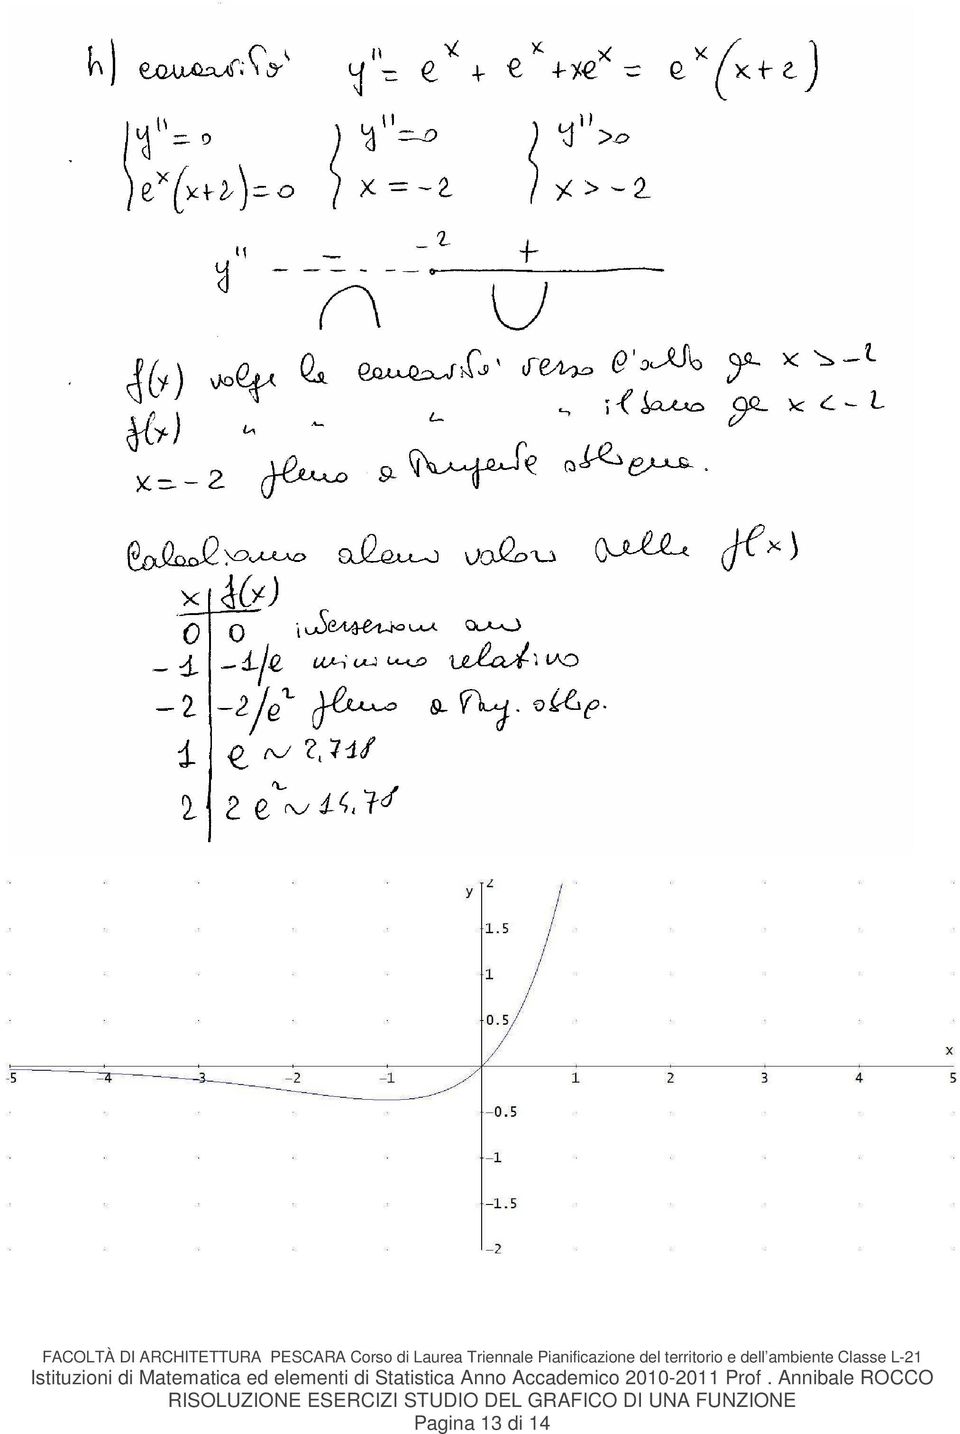 h) concavità y'' = e^x + e^x + xe^x = e^x (x+2)
{ y'' = 0 { y'' = 0 { y'' > 0
{ e^x (x+2) = 0 { x = -2 { x > -2
-2
y'' - +
f(x) volge la concavità verso l'alto per x > -2
f(x) " " " " il basso per x < -2
x = -2 flesso a tangente obliqua.
Calcoliamo alcuni valori della f(x)
x | f(x)
0 | 0 intersezione assi
-1 | -1/e minimo relativo
-2 | -2/e² flesso a tang. obliq.
1 | e ~ 2,718
2 | 2e² ~ 14,78
y 2
1.5
1
0.5
x
-5 -4 -3 -2 -1 1 2 3 4 5
-0.5
-1
-1.5
-2
FACOLTÀ DI ARCHITETTURA PESCARA Corso di Laurea Triennale Pianificazione del territorio e dell'ambiente Classe L-21
Istituzioni di Matematica ed elementi di Statistica Anno Accademico 2010-2011 Prof . Annibale ROCCO
RISOLUZIONE ESERCIZI STUDIO DEL GRAFICO DI UNA FUNZIONE
Pagina 13 di 14